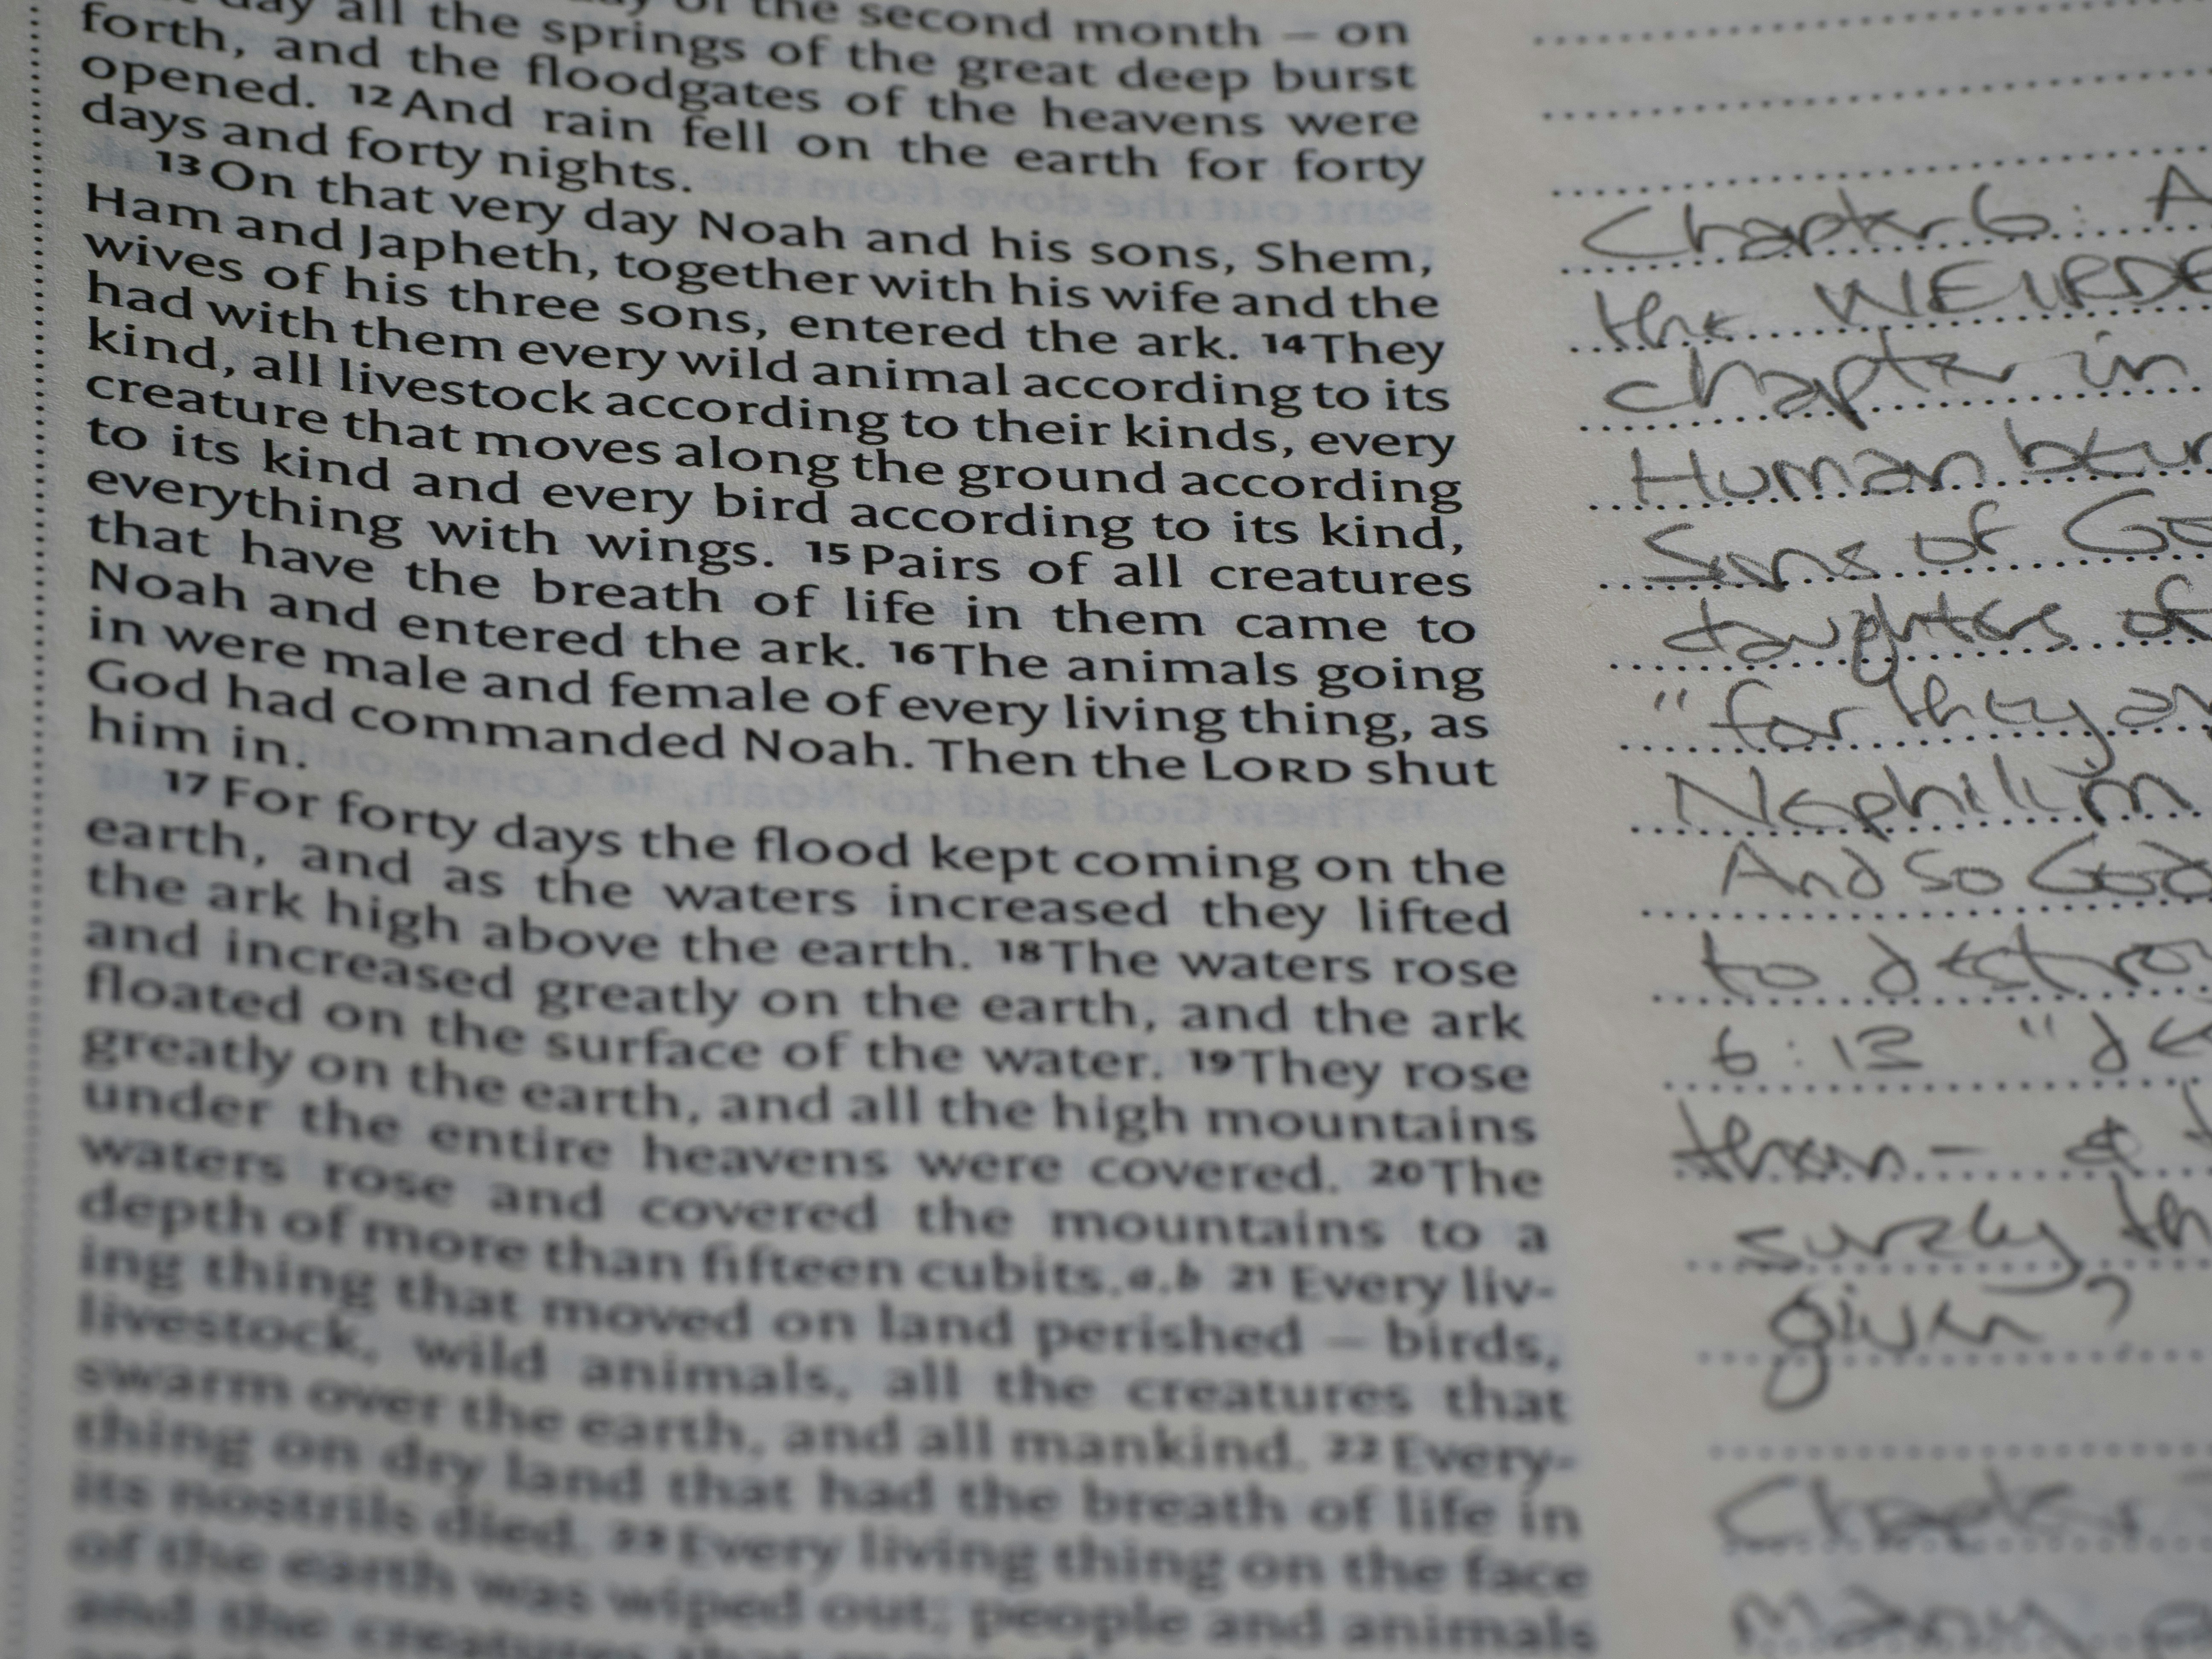 day all the springs of the second month – on
forth, and the floodgates of the great deep burst
opened. 12 And rain fell on the heavens were
days and forty nights. earth for forty
13 On that very day Noah and his sons, Shem,
Ham and Japheth, together with his wife and the
wives of his three sons, entered the ark. 14 They
had with them every wild animal according to its
kind, all livestock according to their kinds, every
creature that moves along the ground according
to its kind and every bird according to its kind,
everything with wings. 15 Pairs of all creatures
that have the breath of life in them came to
Noah and entered the ark. 16 The animals going
in were male and female of every living thing, as
God had commanded Noah. Then the LORD shut
him in.
17 For forty days the flood kept coming on the
earth, and as the waters increased they lifted
the ark high above the earth. 18 The waters rose
and increased greatly on the earth, and the ark
floated on the surface of the water. 19 They rose
greatly on the earth, and all the high mountains
under the entire heavens were covered. 20 The
waters rose and covered the mountains to a
depth of more than fifteen cubits.a,b 21 Every liv-
ing thing that moved on land perished – birds,
livestock, wild animals, all the creatures that
swarm over the earth, and all mankind. 22 Every-
thing on dry land that had the breath of life in
its nostrils died. 23 Every living thing on the face
of the earth was wiped out; people and animals
and the creatures
Chapter 6: A
the WEIRDE
chapter in
Human
Sons of Go
daughters of
"for they
Nephilim
And so God
to destro
6:13 "de
them – & t
surely th
given?
Chapter
many